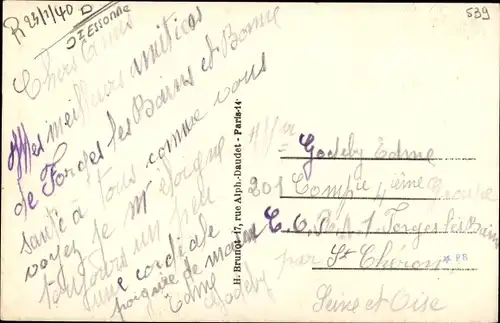 R 23/1/40 D
St Essonne
539
Chers Amis
Mes meilleurs amitiées
de Forges les Bains et Bonne
santé a tous comme vous
voyez je m'éloigne
toujours un peu
une cordiale
poignée de mains
Edme
Godeby
H. Brunot-17, rue Alph.-Daudet - Paris-14
Godeby Edme
201 Compie 4ième
Forges les Bains
par St Chéron
Seine et Oise